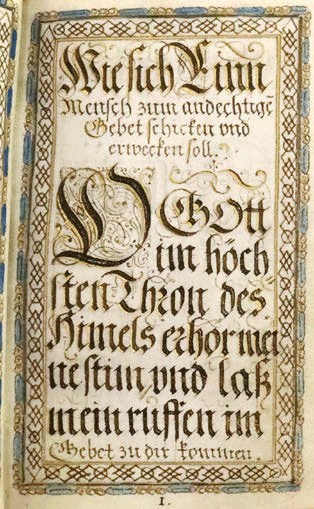 Wie sich Einn
Mensch zum andechtige
Gebet schicken vnd
erwecken soll.
O GOtt
im höch
sten Thron des
Himels erhör mei
ne stim, vnd laß
mein ruffen im
Gebet zu dir kommen.
1.